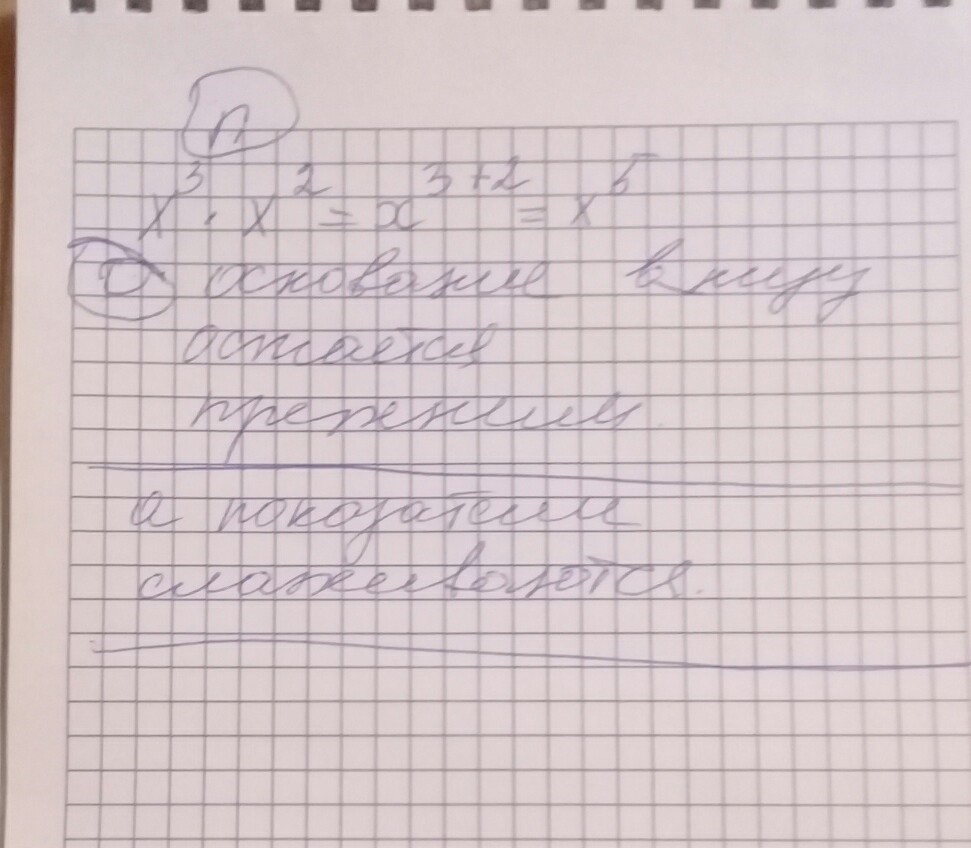 п
x³ · x² = x³⁺² = x⁵
О основание внизу
остаётся
прежним
а показатели
слаживаются.